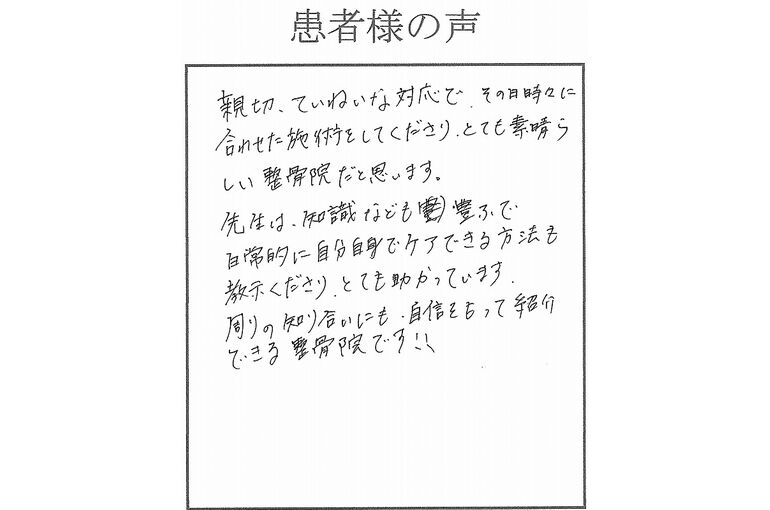 患者様の声
親切、ていねいな対応で、その日時々に
合わせた施術をしてくださり、とても素晴ら
しい整骨院だと思います。
先生は、知識なども豊ふで
日常的に自分自身でケアできる方法も
教示くださり、とても助かっています。
周りの知り合いにも、自信をもって紹介
できる整骨院です!!